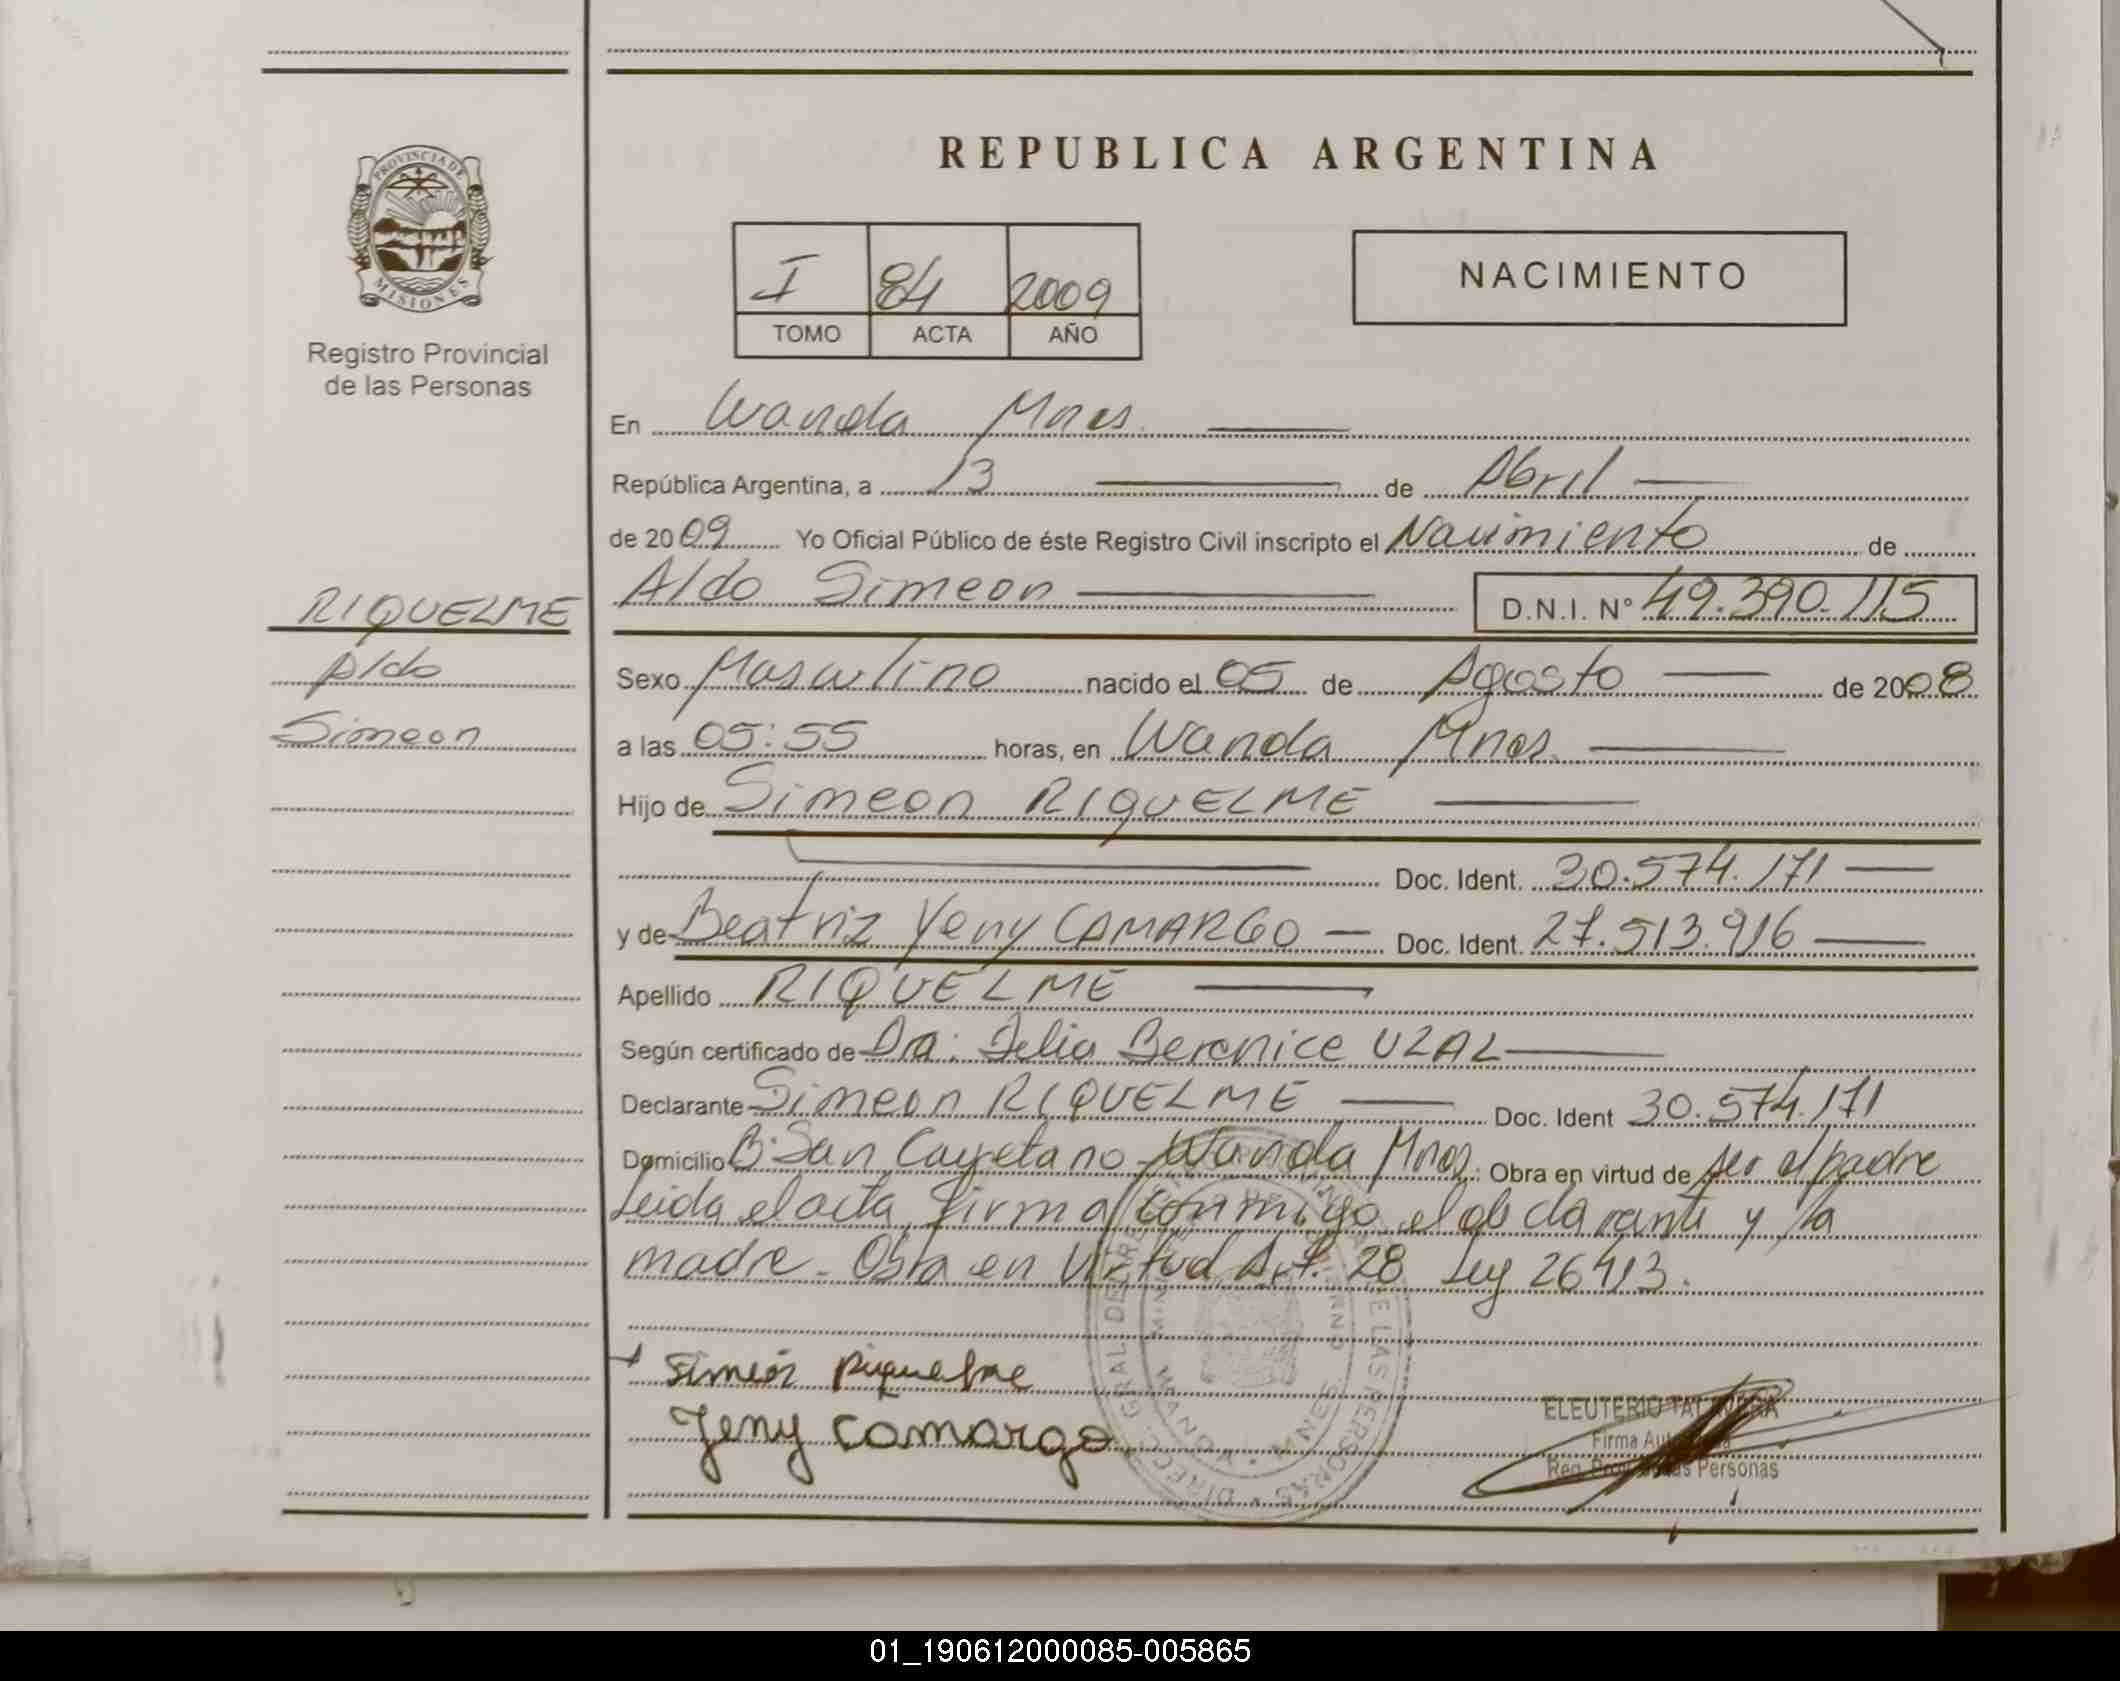 REPUBLICA ARGENTINA
PROVINCIA DE
MISIONES
Registro Provincial
de las Personas
I 84 2009
TOMO ACTA AÑO
NACIMIENTO
En Wanda Mnes.
República Argentina, a 13 de Abril
de 2009 Yo Oficial Público de éste Registro Civil inscripto el Nacimiento de
Aldo Simeon D.N.I. Nº 49.390.115
RIQUELME
Aldo
Simeon
Sexo Masculino nacido el 05 de Agosto de 2008
a las 05:55 horas, en Wanda Mnes.
Hijo de Simeon RIQUELME
Doc. Ident. 30.574.171
y de Beatriz Yeny CAMARGO Doc. Ident. 27.513.916
Apellido RIQUELME
Según certificado de Dra. Delia Berenice UZAL
Declarante Simeon RIQUELME Doc. Ident 30.574.171
Domicilio B. San Cayetano Wanda Mnes. Obra en virtud de ser el padre
Leida el acta, firma conmigo el declarante y la
madre. Obra en Virtud Art. 28 Ley 26413.
Simeón Riquelme
Yeny Camargo
ELEUTERIO TALAVERA
Firma Autorizada
Reg. Prov. de las Personas
01_190612000085-005865